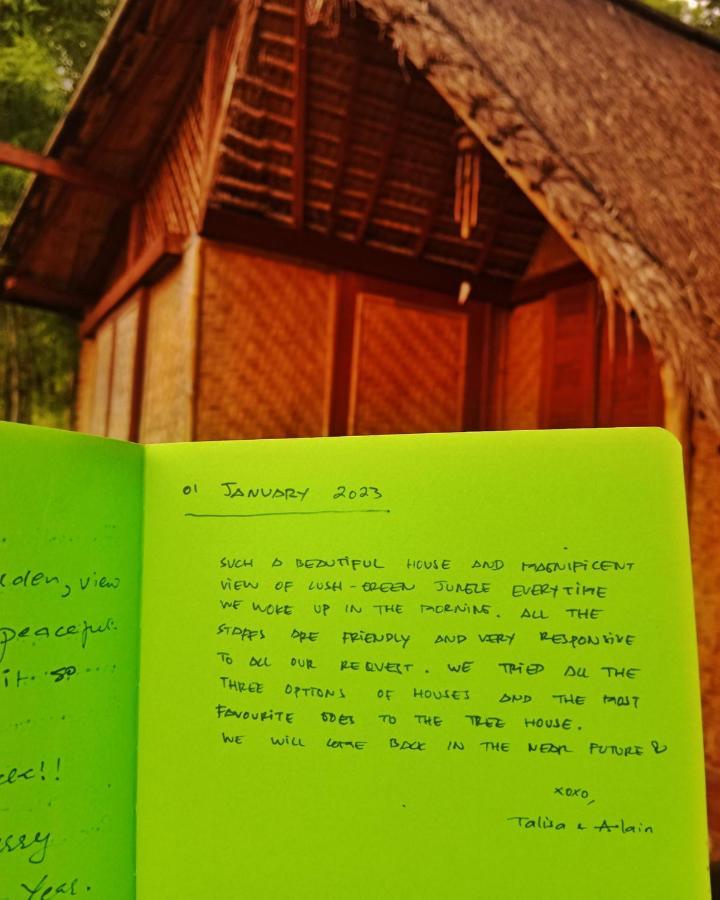 den, view
peaceful.
it so
!!
Year.
01 JANUARY 2023
SUCH A BEAUTIFUL HOUSE AND MAGNIFICENT
VIEW OF LUSH-GREEN JUNGLE EVERYTIME
WE WOKE UP IN THE MORNING. ALL THE
STAFFS ARE FRIENDLY AND VERY RESPONSIVE
TO ALL OUR REQUEST. WE TRIED ALL THE
THREE OPTIONS OF HOUSES AND THE MOST
FAVOURITE GOES TO THE TREE HOUSE.
WE WILL COME BACK IN THE NEAR FUTURE
xoxo,
Talisa & Alain